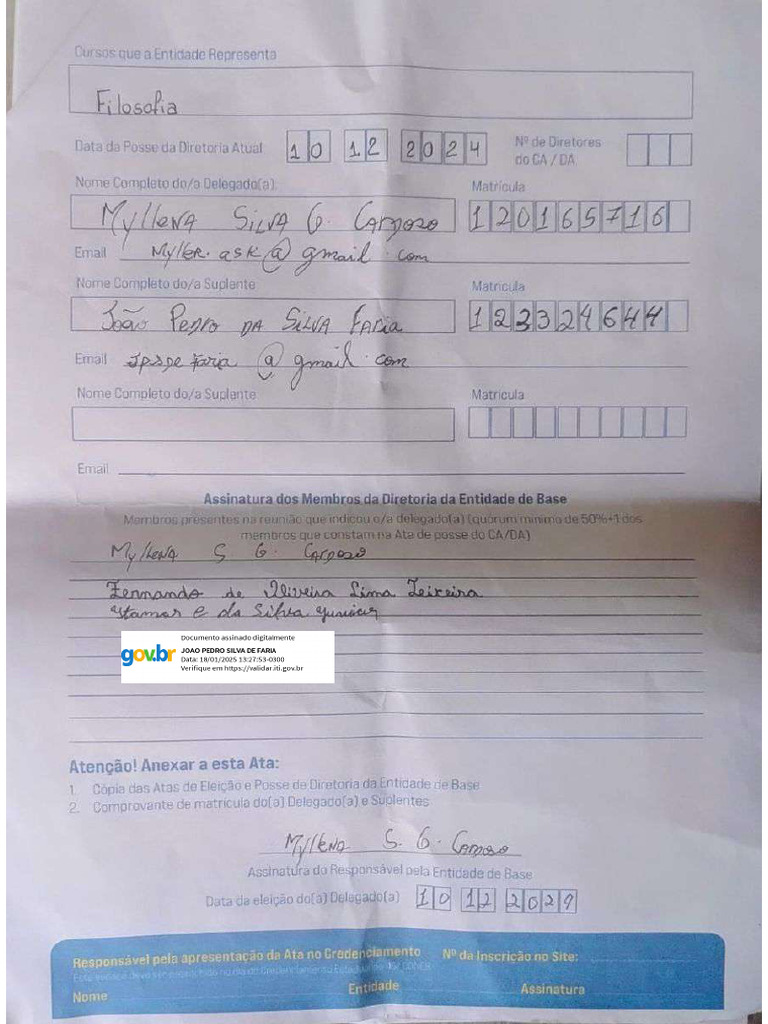 Cursos que a Entidade Representa
Filosofia
Data da Posse da Diretoria Atual 10 12 2024 Nº de Diretores do CA / DA
Nome Completo do/a Delegado(a) Matrícula
Myllena Silva G. Cardoso 120165716
Email Myller.ask@gmail.com
Nome Completo do/a Suplente Matrícula
João Pedro da Silva Faria 123324644
Email jpsdefaria@gmail.com
Nome Completo do/a Suplente Matrícula
Email
Assinatura dos Membros da Diretoria da Entidade de Base
Membros presentes na reunião que indicou o/a delegado(a) (quórum mínimo de 50%+1 dos
membros que constam na Ata de posse do CA/DA)
Myllena S G. Cardoso
Fernando de Oliveira Lima Teixeira
da Silva
Documento assinado digitalmente
gov.br JOAO PEDRO SILVA DE FARIA
Data: 18/01/2025 13:27:53-0300
Verifique em https://validar.iti.gov.br
Atenção! Anexar a esta Ata:
1. Cópia das Atas de Eleição e Posse de Diretoria da Entidade de Base
2. Comprovante de matrícula do(a) Delegado(a) e Suplentes
Myllena S. G. Cardoso
Assinatura do Responsável pela Entidade de Base
Data da eleição do(a) Delegado(a) 10 12 2024
Responsável pela apresentação da Ata no Credenciamento Nº da Inscrição no Site:
Nome Entidade Assinatura